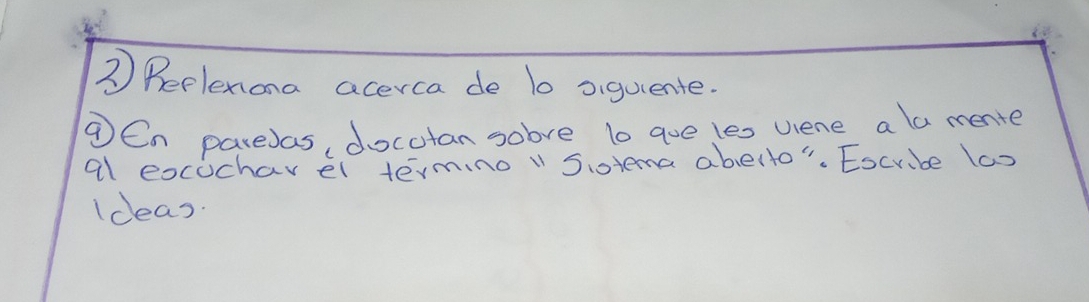 2) Reflexiona acerca de lo siguiente.
a) En parejas, discutan sobre lo que les viene a la mente
al escuchar el término "Sistema abierto". Escribe las
ideas.